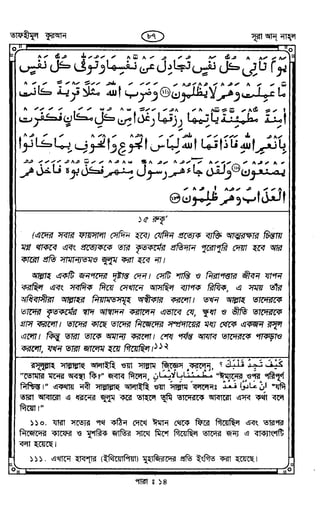 তাফহীমুল কুরআন
৮৭
সূরা আন নাহল
يَوْمَ تَأْتِي كُلُّ نَفْسٍ تُجَادِلُ عَنْ نَفْسِهَا وَتُوَفَّى كُلُّ نَفْسٍ
مَّا عَمِلَتْ وَهُمْ لَا يُظْلَمُونَ ﴿١١١﴾ وَضَرَبَ اللَّهُ مَثَلًا قَرْيَةً كَانَتْ
آمِنَةً مُّطْمَئِنَّةً يَأْتِيهَا رِزْقُهَا رَغَدًا مِّنْ كُلِّ مَكَانٍ فَكَفَرَتْ
بِأَنْعُمِ اللَّهِ فَأَذَاقَهَا اللَّهُ لِبَاسَ الْجُوعِ وَالْخَوْفِ بِمَا كَانُوا
يَصْنَعُونَ ﴿١١٢﴾ وَلَقَدْ جَاءَهُمْ رَسُولٌ مِّنْهُمْ فَكَذَّبُوهُ فَأَخَذَهُمُ
الْعَذَابُ وَهُمْ ظَالِمُونَ ﴿١١٣﴾
১৫ রুকূ'
(এদের সবার ফায়সালা সেদিন হবে) যেদিন প্রত্যেক ব্যক্তি আত্মরক্ষার চিন্তায়
মগ্ন থাকবে এবং প্রত্যেককে তার কৃতকর্মের প্রতিদান পুরোপুরি দেয়া হবে আর
কারো প্রতি সামান্যতমও জুলুম করা হবে না।
আল্লাহ একটি জনপদের দৃষ্টান্ত দেন। সেটি শান্তি ও নিরাপত্তার জীবন যাপন
করছিল এবং সবদিক দিয়ে সেখানে আসছিল ব্যাপক রিযিক, এ সময় তাঁর
অধিবাসীরা আল্লাহর নিয়ামতসমূহ অস্বীকার করলো। তখন আল্লাহ তাদেরকে
তাদের কৃতকর্মের স্বাদ আস্বাদন করালেন এভাবে যে, ক্ষুধা ও ভীতি তাদেরকে
গ্রাস করলো। তাদের কাছে তাদের নিজেদের সম্প্রদায়ের মধ্য থেকে একজন রসূল
এলো। কিন্তু তারা তাকে অমান্য করলো। শেষ পর্যন্ত আযাব তাদেরকে পাকড়াও
করলো, যখন তারা জালেম হয়ে গিয়েছিল।
রসূলুল্লাহ সাল্লাল্লাহু আলাইহি ওয়া সাল্লাম জিজ্ঞেস করলেন, كَيْفَ تَجِدُ قَلْبَكَ ؟
"তোমার মনের অবস্থা কি?" জবাব দিলেন, مُطْمَئِنًّا بِالْإِيمَانِ "ঈমানের ওপর পরিপূর্ণ
নিশ্চিন্ত।" একথায় নবী সাল্লাল্লাহু আলাইহি ওয়া সাল্লাম বললেনঃ إِنْ عَادُوا فَعُدْ "যদি
তারা আবারো এ ধরনের জুলুম করে তাহলে তুমি তাদেরকে আবারো এসব কথা বলে
দিয়ো।"
১১০. যারা সত্যের পথ কঠিন দেখে ঈমান থেকে ফিরে গিয়েছিল এবং তারপর
নিজেদের কাফের ও মুশরিক জাতির সাথে মিশে গিয়েছিল তাদের জন্য এ বাক্যাংশটি
বলা হয়েছে।
১১১. এখানে হাবশার (ইথিয়োপিয়া) মুহাজিরদের প্রতি ইংগিত করা হয়েছে।
পারা ঃ ১৪